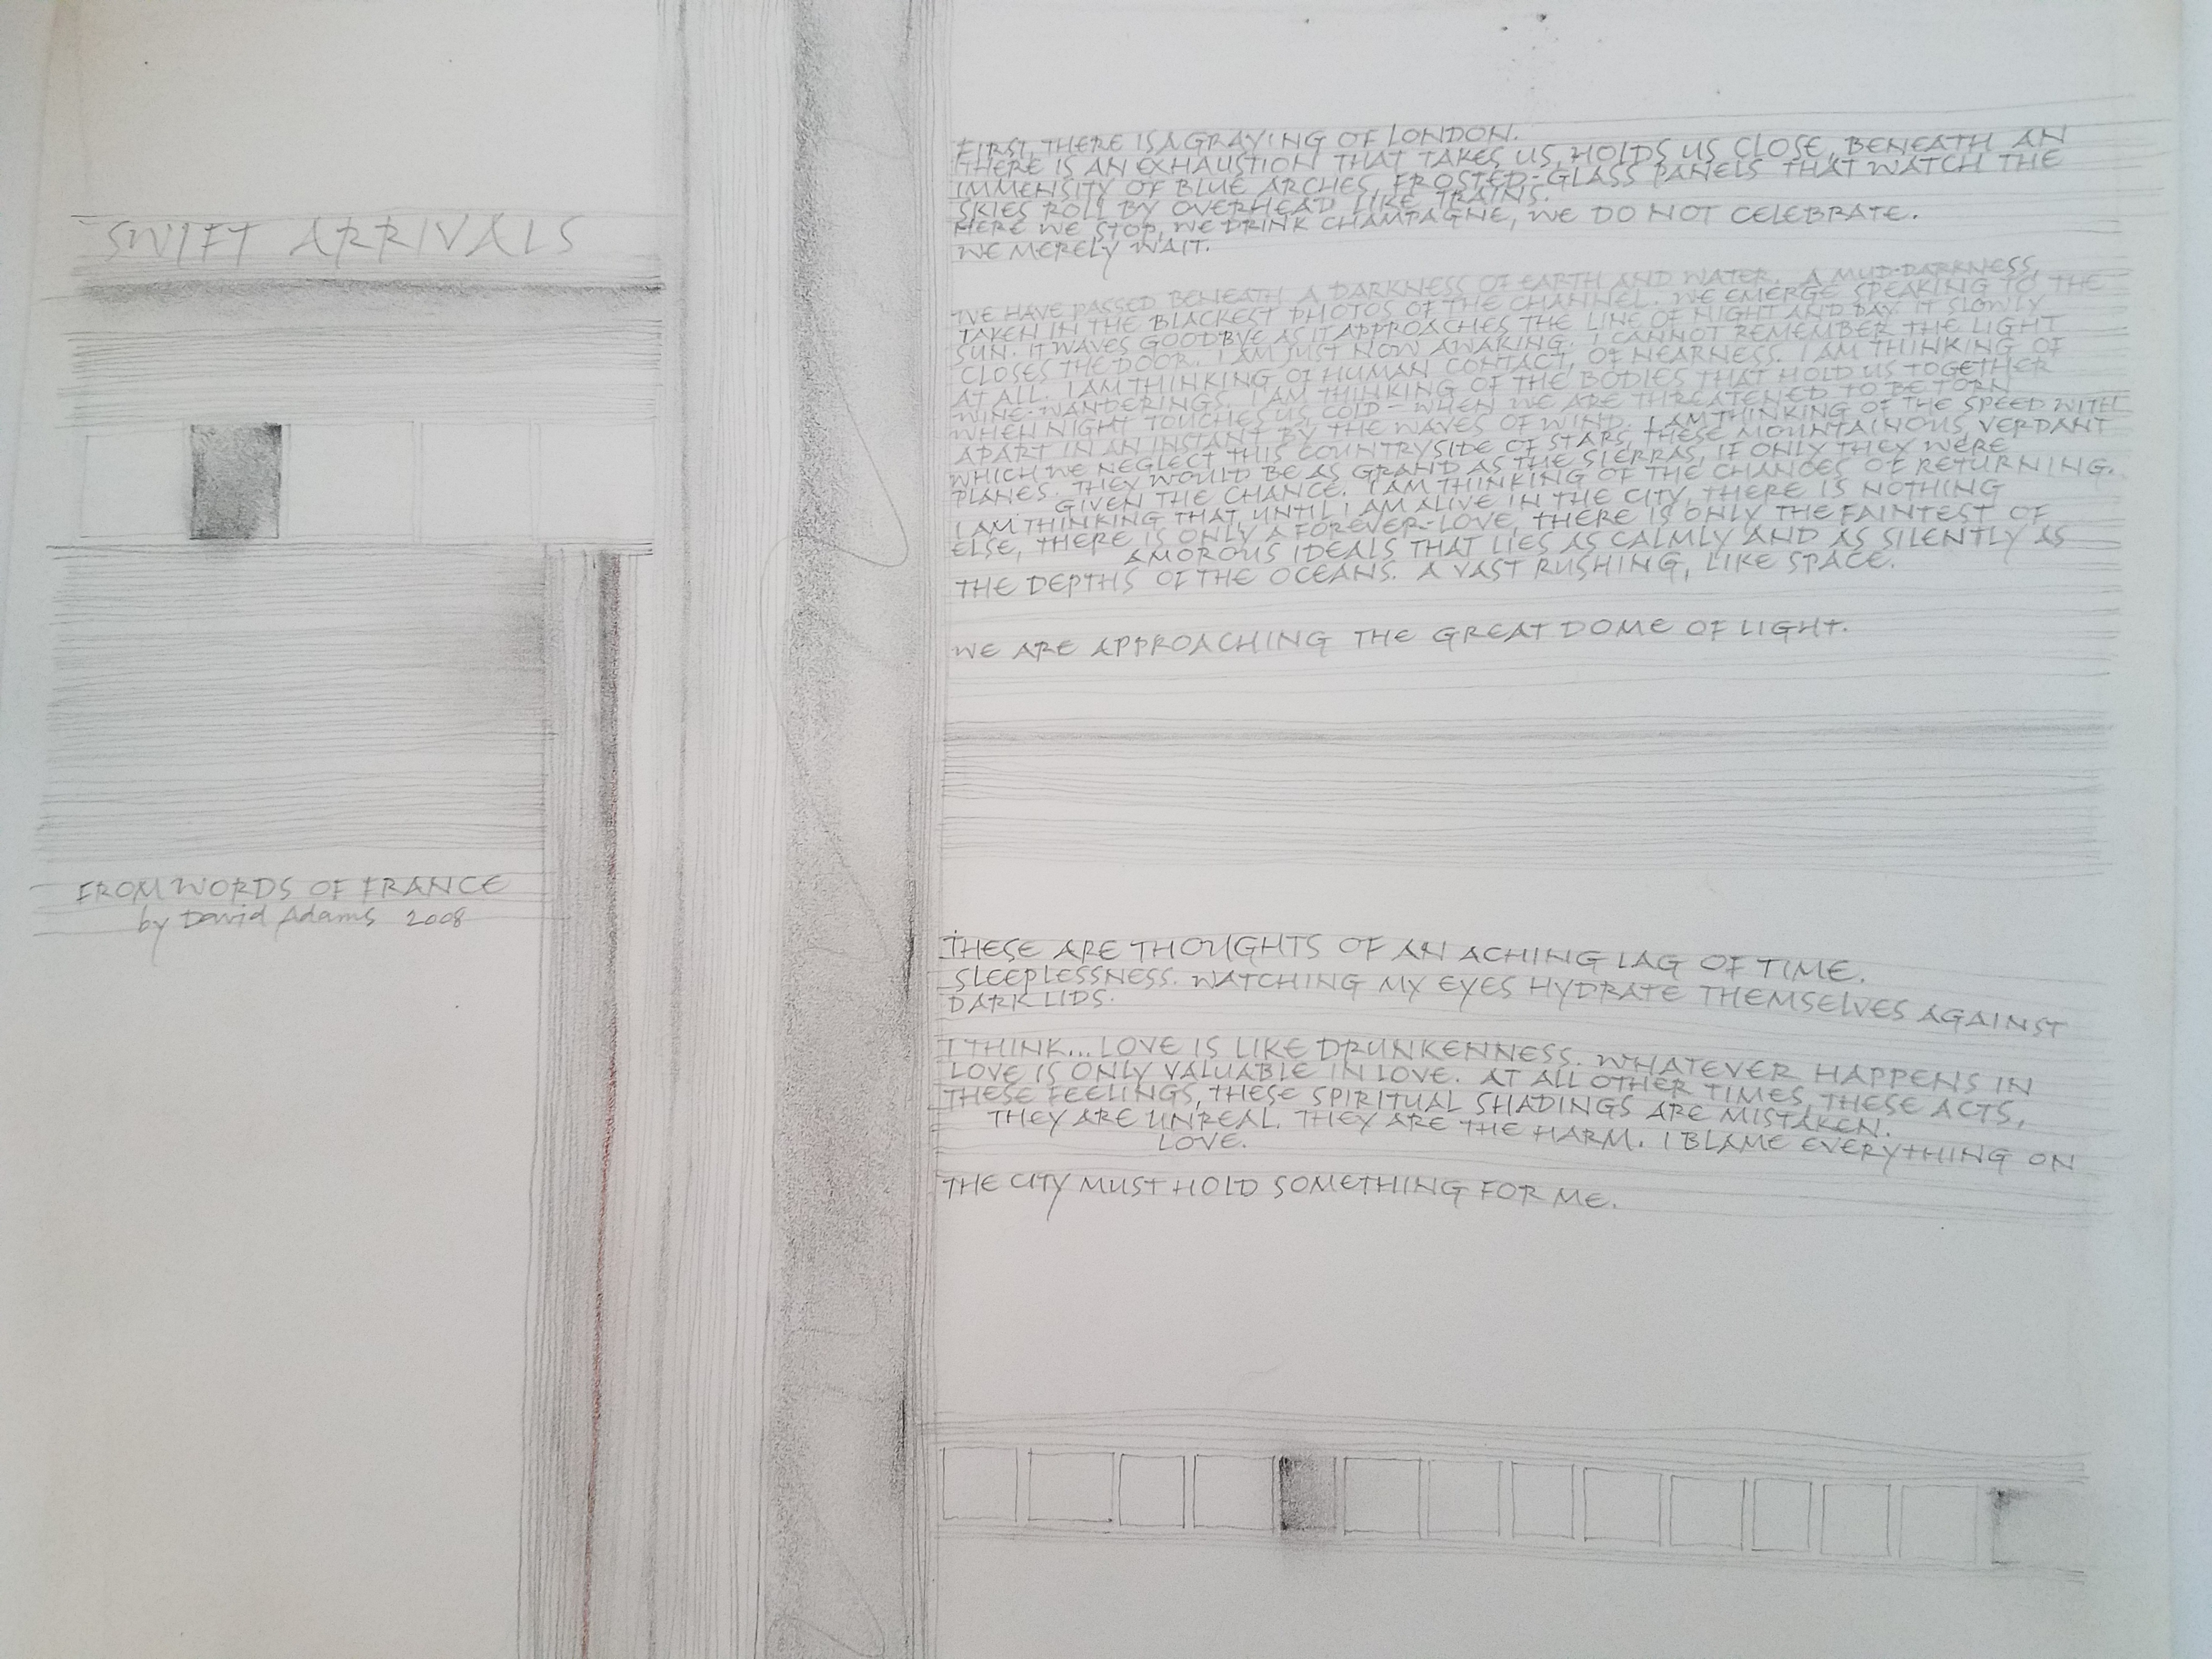 SWIFT ARRIVALS
FROM WORDS OF FRANCE
by David Adams 2008
FIRST, THERE IS A GRAYING OF LONDON.
THERE IS AN EXHAUSTION THAT TAKES US, HOLDS US CLOSE, BENEATH AN
IMMENSITY OF BLUE ARCHES, FROSTED-GLASS PANELS THAT WATCH THE
SKIES ROLL BY OVERHEAD LIKE TRAINS.
HERE WE STOP, WE DRINK CHAMPAGNE, WE DO NOT CELEBRATE.
WE MERELY WAIT.
WE HAVE PASSED BENEATH A DARKNESS OF EARTH AND WATER. A MUD-DARKNESS,
TAKEN IN THE BLACKEST PHOTOS OF THE CHANNEL. WE EMERGE SPEAKING TO THE
SUN. IT WAVES GOODBYE AS IT APPROACHES THE LINE OF NIGHT AND DAY. IT SLOWLY
CLOSES THE DOOR. I AM JUST NOW AWAKING. I CANNOT REMEMBER THE LIGHT
AT ALL. I AM THINKING OF HUMAN CONTACT, OF NEARNESS. I AM THINKING OF
WINE-WANDERINGS. I AM THINKING OF THE BODIES THAT HOLD US TOGETHER
WHEN NIGHT TOUCHES US COLD - WHEN WE ARE THREATENED TO BE TORN
APART IN AN INSTANT BY THE WAVES OF WIND. I AM THINKING OF THE SPEED WITH
WHICH WE NEGLECT THIS COUNTRYSIDE OF STARS, THESE MOUNTAINOUS, VERDANT
PLANES. THEY WOULD BE AS GRAND AS THE SIERRAS, IF ONLY THEY WERE
GIVEN THE CHANCE. I AM THINKING OF THE CHANCES OF RETURNING.
I AM THINKING THAT, UNTIL I AM ALIVE IN THE CITY, THERE IS NOTHING
ELSE, THERE IS ONLY A FOREVER-LOVE, THERE IS ONLY THE FAINTEST OF
AMOROUS IDEALS THAT LIES AS CALMLY AND AS SILENTLY AS
THE DEPTHS OF THE OCEANS. A VAST RUSHING, LIKE SPACE.
WE ARE APPROACHING THE GREAT DOME OF LIGHT.
THESE ARE THOUGHTS OF AN ACHING LAG OF TIME.
SLEEPLESSNESS. WATCHING MY EYES HYDRATE THEMSELVES AGAINST
DARK LIDS.
I THINK... LOVE IS LIKE DRUNKENNESS. WHATEVER HAPPENS IN
LOVE IS ONLY VALUABLE IN LOVE. AT ALL OTHER TIMES, THESE ACTS,
THESE FEELINGS, THESE SPIRITUAL SHADINGS ARE MISTAKEN.
THEY ARE UNREAL. THEY ARE THE HARM. I BLAME EVERYTHING ON
LOVE.
THE CITY MUST HOLD SOMETHING FOR ME.